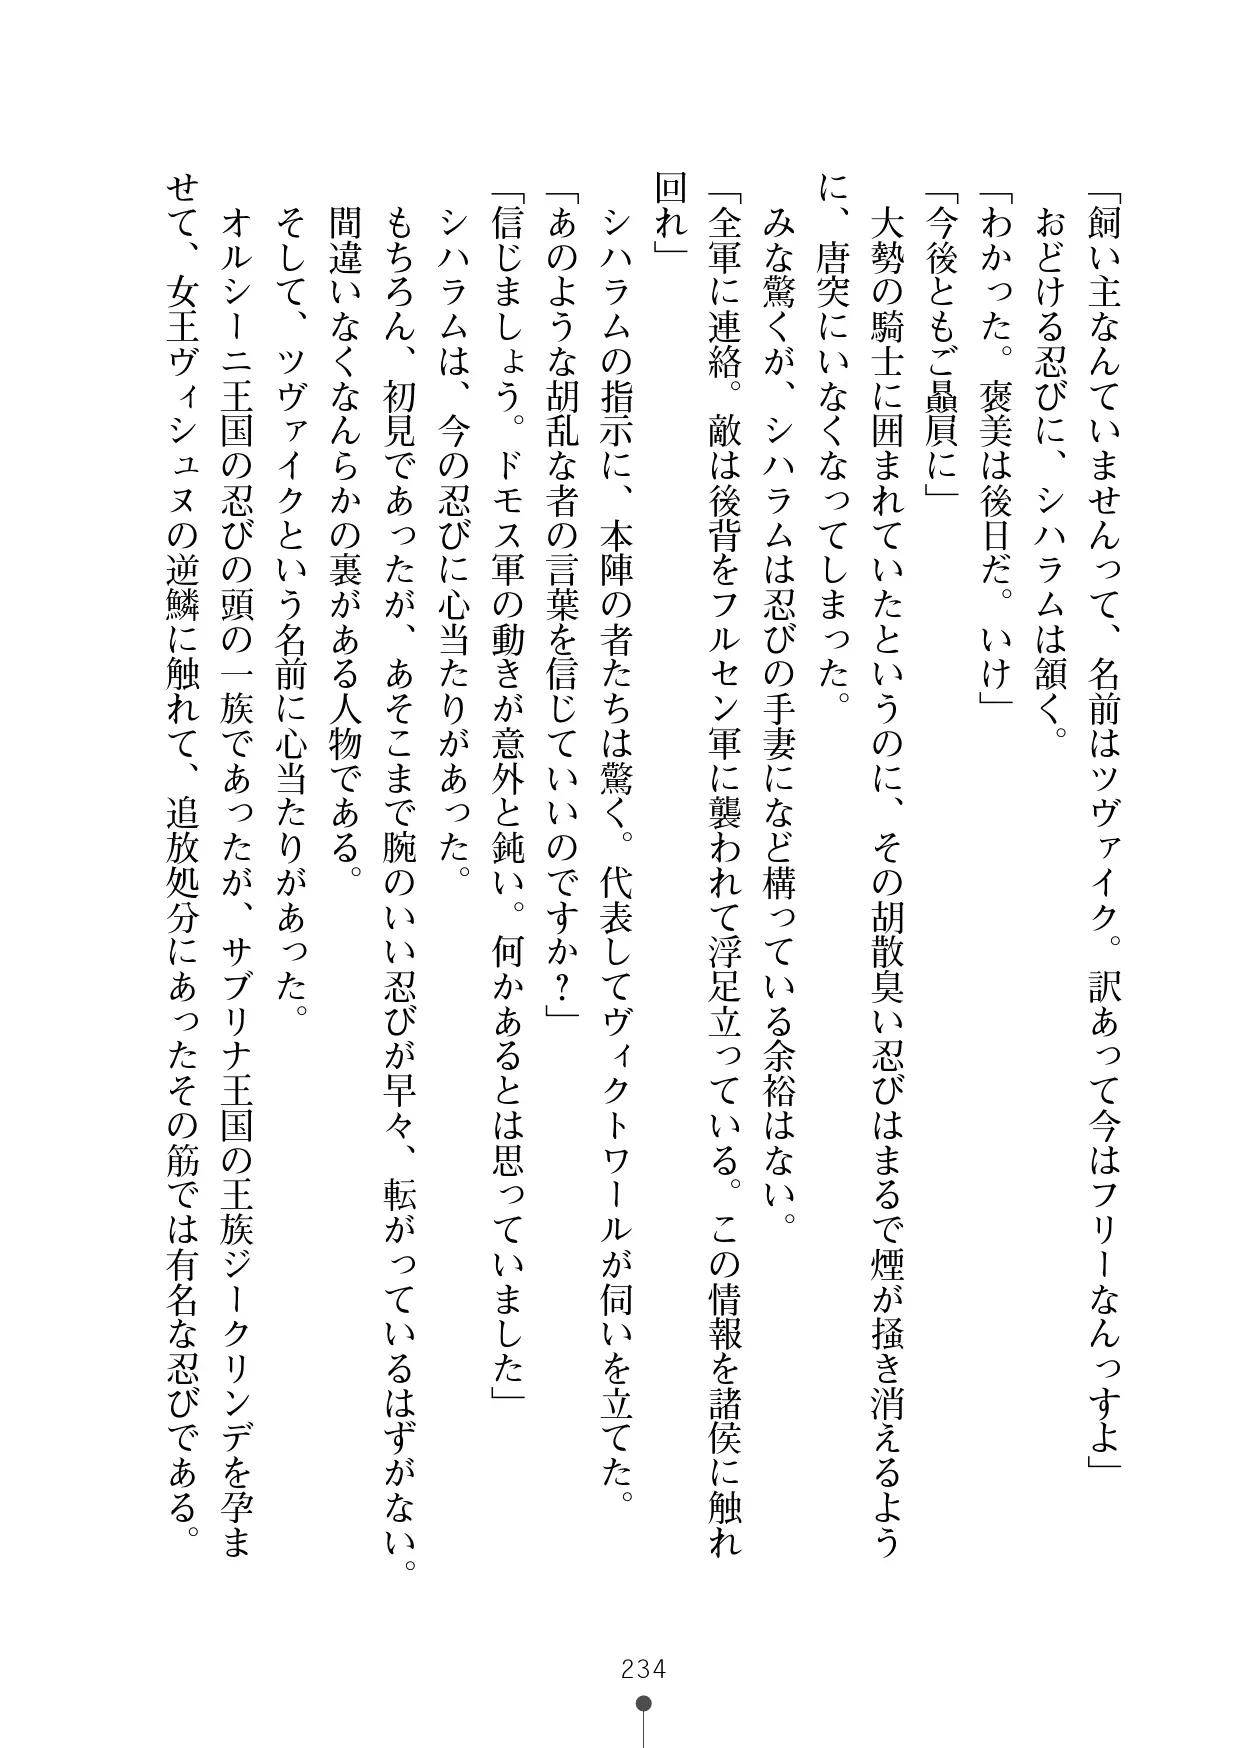 「飼い主なんていませんって、名前はツヴァイク。訳あって今はフリーなんっすよ」
　おどける忍びに、シハラムは頷く。
「わかった。褒美は後日だ。いけ」
「今後ともご贔屓に」
　大勢の騎士に囲まれていたというのに、その胡散臭い忍びはまるで煙が掻き消えるよう
に、唐突にいなくなってしまった。
　みな驚くが、シハラムは忍びの手妻になど構っている余裕はない。
「全軍に連絡。敵は後背をフルセン軍に襲われて浮足立っている。この情報を諸侯に触れ
回れ」
　シハラムの指示に、本陣の者たちは驚く。代表してヴィクトワールが伺いを立てた。
「あのような胡乱な者の言葉を信じていいのですか？」
「信じましょう。ドモス軍の動きが意外と鈍い。何かあるとは思っていました」
　シハラムは、今の忍びに心当たりがあった。
　もちろん、初見であったが、あそこまで腕のいい忍びが早々、転がっているはずがない。
　間違いなくなんらかの裏がある人物である。
　そして、ツヴァイクという名前に心当たりがあった。
　オルシーニ王国の忍びの頭の一族であったが、サブリナ王国の王族ジークリンデを孕ま
せて、女王ヴィシュヌの逆鱗に触れて、追放処分にあったその筋では有名な忍びである。
234